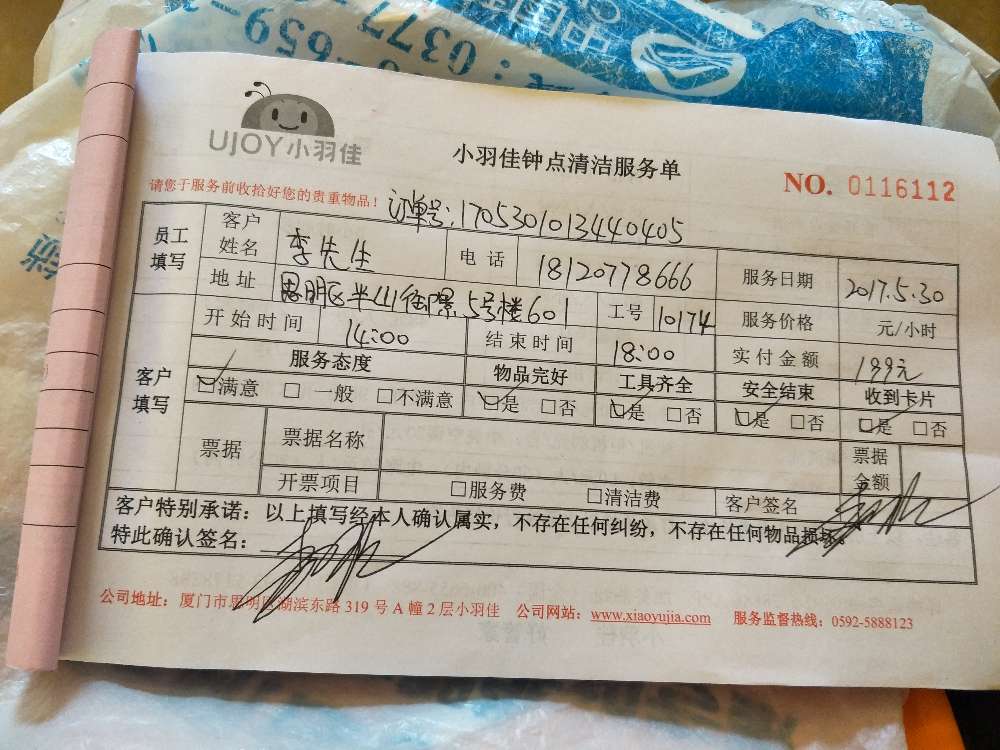 UJOY小羽佳
小羽佳钟点清洁服务单
NO. 0116112
请您于服务前收拾好您的贵重物品！
订单号：1705301013440405
员工填写 客户姓名 李先生 电话 18120778666 服务日期 2017.5.30
地址 思明区半山御景5号楼601 工号 10174 服务价格 元/小时
客户填写 开始时间 14:00 结束时间 18:00 实付金额 199元
服务态度 物品完好 工具齐全 安全结束 收到卡片
☑满意 □一般 □不满意 ☑是 □否 ☑是 □否 ☑是 □否 ☑是 □否
票据 票据名称 票据金额
开票项目 □服务费 □清洁费 客户签名
客户特别承诺：以上填写经本人确认属实，不存在任何纠纷，不存在任何物品损坏。
特此确认签名：
公司地址：厦门市思明区湖滨东路 319 号 A 幢 2 层小羽佳 公司网站：www.xiaoyujia.com 服务监督热线：0592-5888123